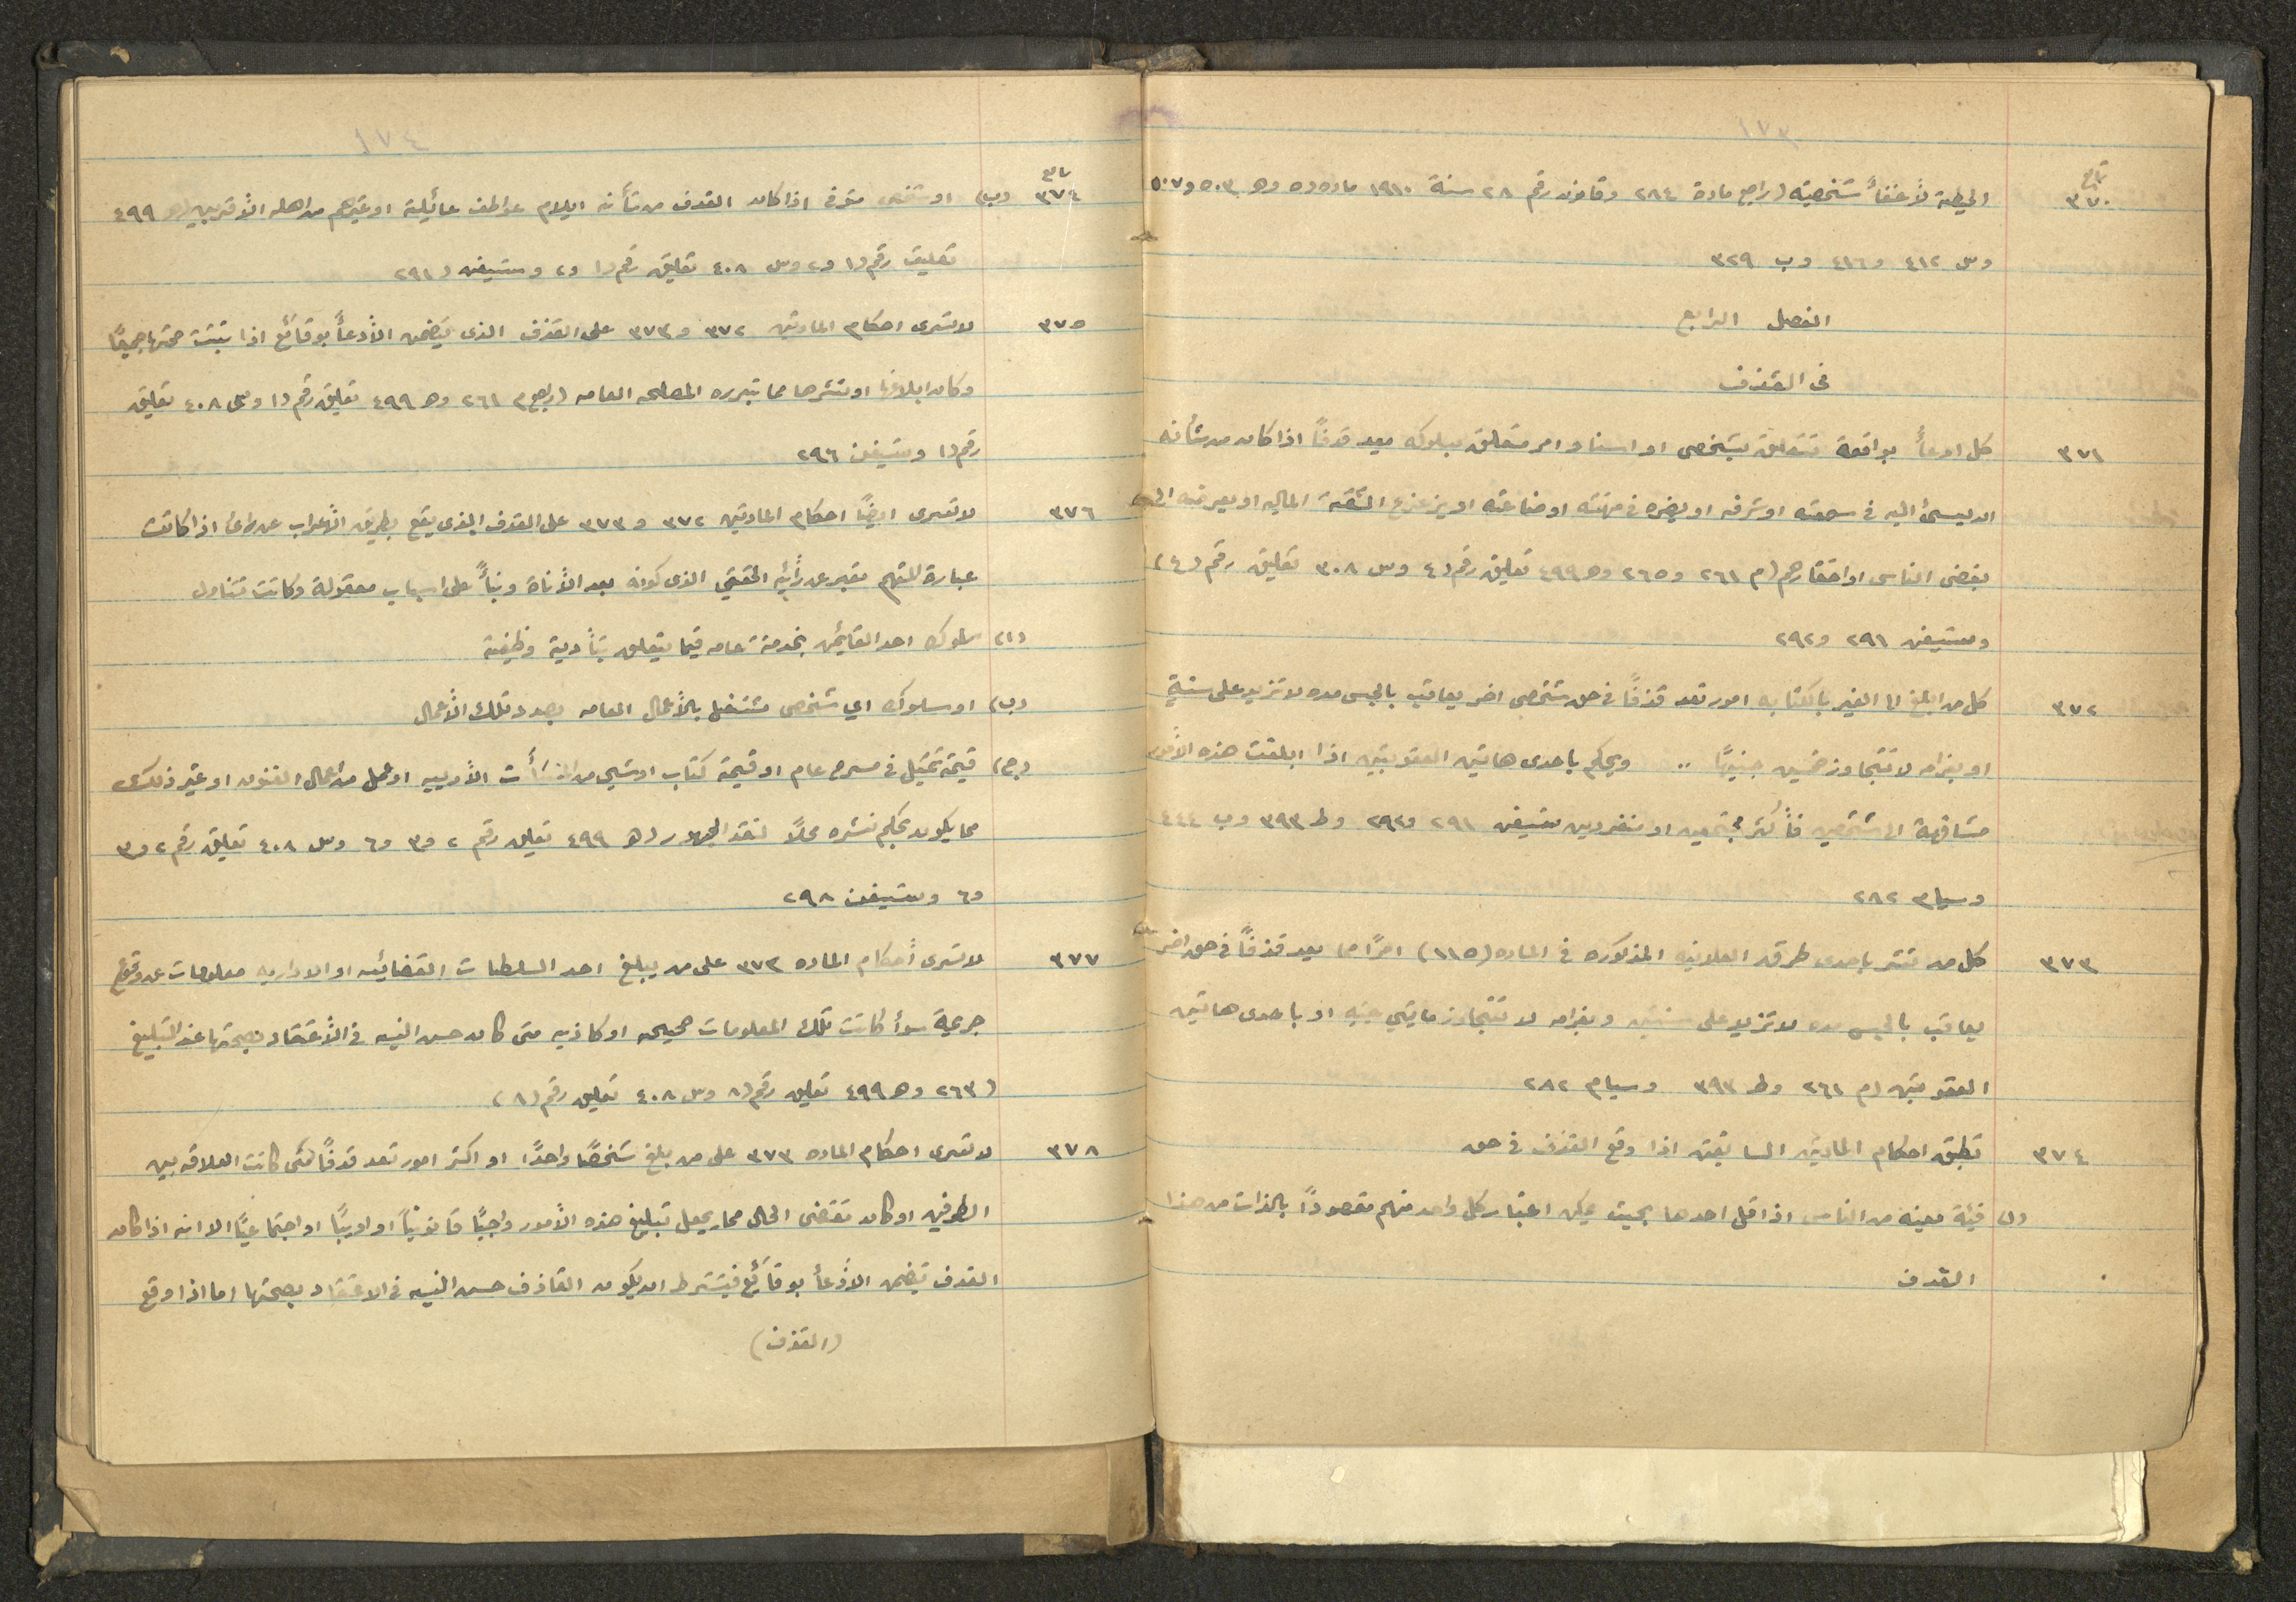 ١٧٣
تابع
٣٧٠
الحيطة لأخفأ شخصيته (راجع مادة ٢٨٤ وقانون رقم ٢٨ سنة ١٩١٠ ماده ٥ وهـ ٥٠٣ و ٥٠٧
وس ٤١٢ و ٤١٦ وب ٣٢٩
الفصل الرابع
فى القذف
٣٧١ كل ادعأ بواقعة تتعلق بشخص او اسناد امر متعلق بسلوكه يعد قذفاً اذا كان من شأنه
ان يسئ اليه فى سمعته او شرفه او يضره فى مهنته او صناعته او يزعزع الثقة الماليه او يعرضه الى
بغض الناس او احتقارهم (م ٢٦١ و ٢٦٥ وهـ ٤٩٩ تعليق رقم (٤ وس ٣٠٨ تعليق رقم (٤)
وستيفن ٢٩١ و ٢٩٢
٣٧٢ كل من ابلغ الى الغير بالكتابه امور تعد قذفاً فى حق شخص اخر يعاقب بالحبس مده لا تزيد على سنة
او بغرامه لا تتجاوز خمسين جنيهاً .. ويحكم باحدى هاتين العقوبتين اذا ابلغت هذه الأمور
مشافهة الى شخصين فأكثر مجتمعين او منفردين ستيفن ٢٩١ و ٢٩٢ وط ٣٩٣ وب ٤٤٤
وسيام ٢٨٢
٣٧٣ كل من نشر بإحدى طرق العلانيه المذكوره فى الماده (١١٥) امراً مما يعد قذفاً فى حق اخر
يعاقب بالحبس مده لا تزيد على سنتين وبغرامه لا تتجاوز مايتي جنيه او باحدى هاتين
العقوبتين (م ٢٦١ وط ٣٩٣ وسيام ٢٨٢
٣٧٤ تطبق احكام المادتين السابقتين اذا وقع القذف فى حق
(ا) فيئة معينه من الناس اذا قل احدها بحيث يمكن اعتبار كل واحد منهم مقصوداً بالذات من هذا
القدف
١٧٤
تابع
٣٧٤ (ب) او شخص متوفى اذا كان القدف من شأنه ايلام عواطف عائيلته او غيرهم من اهله الأقربين (هـ ٤٩٩
تعليق رقم (١ و ٢ وس ٤٠٨ تعليق رقم (١ و ٢ وستيفن (٢٩١
٣٧٥ لا تسرى احكام المادتين ٣٧٢ و ٣٧٣ على القذف الذى يتضمن الأدعأ بوقائع اذا ثبتت صحتها جميعاً
وكان ابلاغها او نشرها مما تبرره المصلحه العامه (راجع م ٢٦١ وهـ ٤٩٩ تعليق رقم (١ وس ٤٠٨ تعليق
رقم (١ وستيفن ٢٩٦
٣٧٦ لا تسرى ايضاً احكام المادتين ٣٧٢ و ٣٧٣ على القدف الذى يقع بطريق الأعراب عن رائ اذا كانت
عبارة المتهم تعبر عن رأيه الحقيقي الذى كونه بعد الأناة وبنأً على اسباب معقولة وكانت تتناول
(ا) سلوك احد القائمين بخدمة عامه فيما يتعلق بتأدية وظيفته
(ب) او سلوك اي شخص مشتغل بالأعمال العامه بصدد تلك الأعمال
(ج) قيمة تمثيل فى مسرح عام او قيمة كتاب او شي من المنشأت الأدبيه او عمل من اعمال الفنون او غير ذلك
مما يكون بحكم نشره محلاً لنقد الجمهور (هـ ٤٩٩ تعليق رقم ٢ و ٣ و ٦ وس ٤٠٨ تعليق رقم ٢ و ٣
و ٦ وستيفن ٢٩٨
٣٧٧ لا تسرى أحكام الماده ٣٧٣ على من يبلغ احد السلطات القضائيه او الاداريه معلومات عن وقوع
جريمة سوأ كانت تلك المعلومات صحيحه او كاذبه متى كان حسن النيه فى الأعتقاد بصحتها عند التبليغ
(٢٦٣ وهـ ٤٩٩ تعليق رقم (٨ وس ٤٠٨ تعليق رقم (٨)
٣٧٨ لا تسرى احكام الماده ٣٧٣ على من بلغ شخصاً واحداً او اكثر امور تعد قدفاً متى كانت العلاقه بين
الطرفين او كان مقتضى الحال مما يجعل تبليغ هذه الأمور واجباً قانونياً او ادبياً او اجتماعياً الا انه اذا كان
القدف يتضمن الأدعأ بوقائع فيشترط ان يكون القاذف حسن النيه فى الاعتقاد بصحتها اما اذا وقع
(القذف)